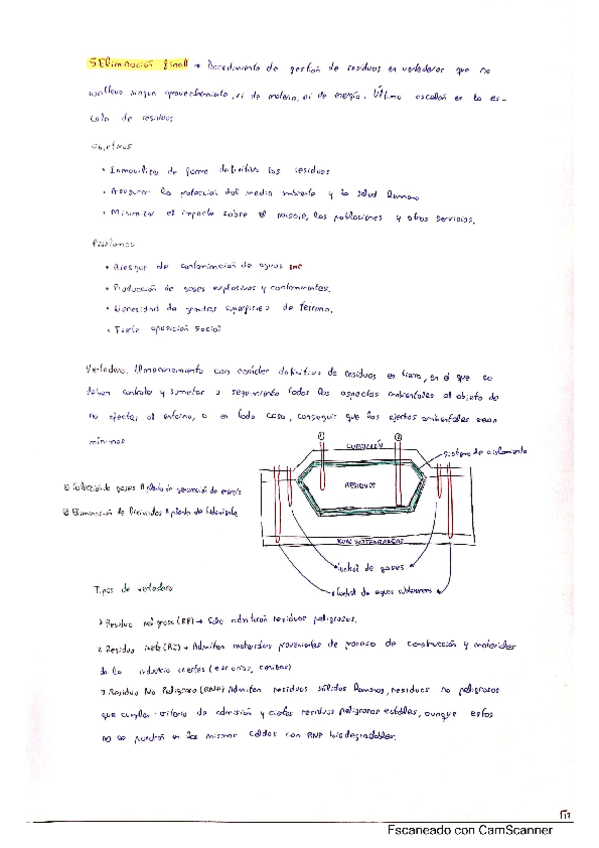 5 Eliminación final → Procedimiento de gestión de residuos en vertederos que no
conlleva ningun aprovechamiento, ni de materia, ni de energía. Último escalón en la es-
cala de residuos
Objetivos
• Inmovilizar de forma definitiva los residuos
• Asegurar la protección del medio ambiente y la salud humana
• Minimizar el impacto sobre el paisaje, las poblaciones y otros servicios.
Problemas
• Riesgos de contaminación de aguas
• Producción de gases explosivos y contaminantes.
• Necesidad de grandes superficies de terreno.
• Fuerte oposición social
Vertedero: Almacenamiento con carácter definitivo de residuos en tierra, en el que se
deben controlar y someter a seguimiento todos los aspectos ambientales al objeto de
no afectar al entorno, o en todo caso, conseguir que los efectos ambientales sean
mínimos
① ②
CUBRICIÓN
Sistema de aislamiento
RESIDUOS
1) Extracción de gases A planta de generación de energía
2) Eliminación de lixiviados A planta de tratamiento
AGUAS SUBTERRANEAS
Control de gases
Control de aguas subterraneas
Tipos de vertedero
1 Residuo peligroso (RP) → Solo admitirán residuos peligrosos.
2 Residuo inerte (RI) → Admiten materiales provenientes de proceso de construcción y materiales
de la industria inertes (escorias, cenizas)
3 Residuo No Peligroso (RNP) Admiten residuos sólidos urbanos, residuos no peligrosos
que cumplan criterio de admisión y ciertos residuos peligrosos estables, aunque estos
no se pondrán en las mismas celdas con RNP biodegradables.
Escaneado con CamScanner